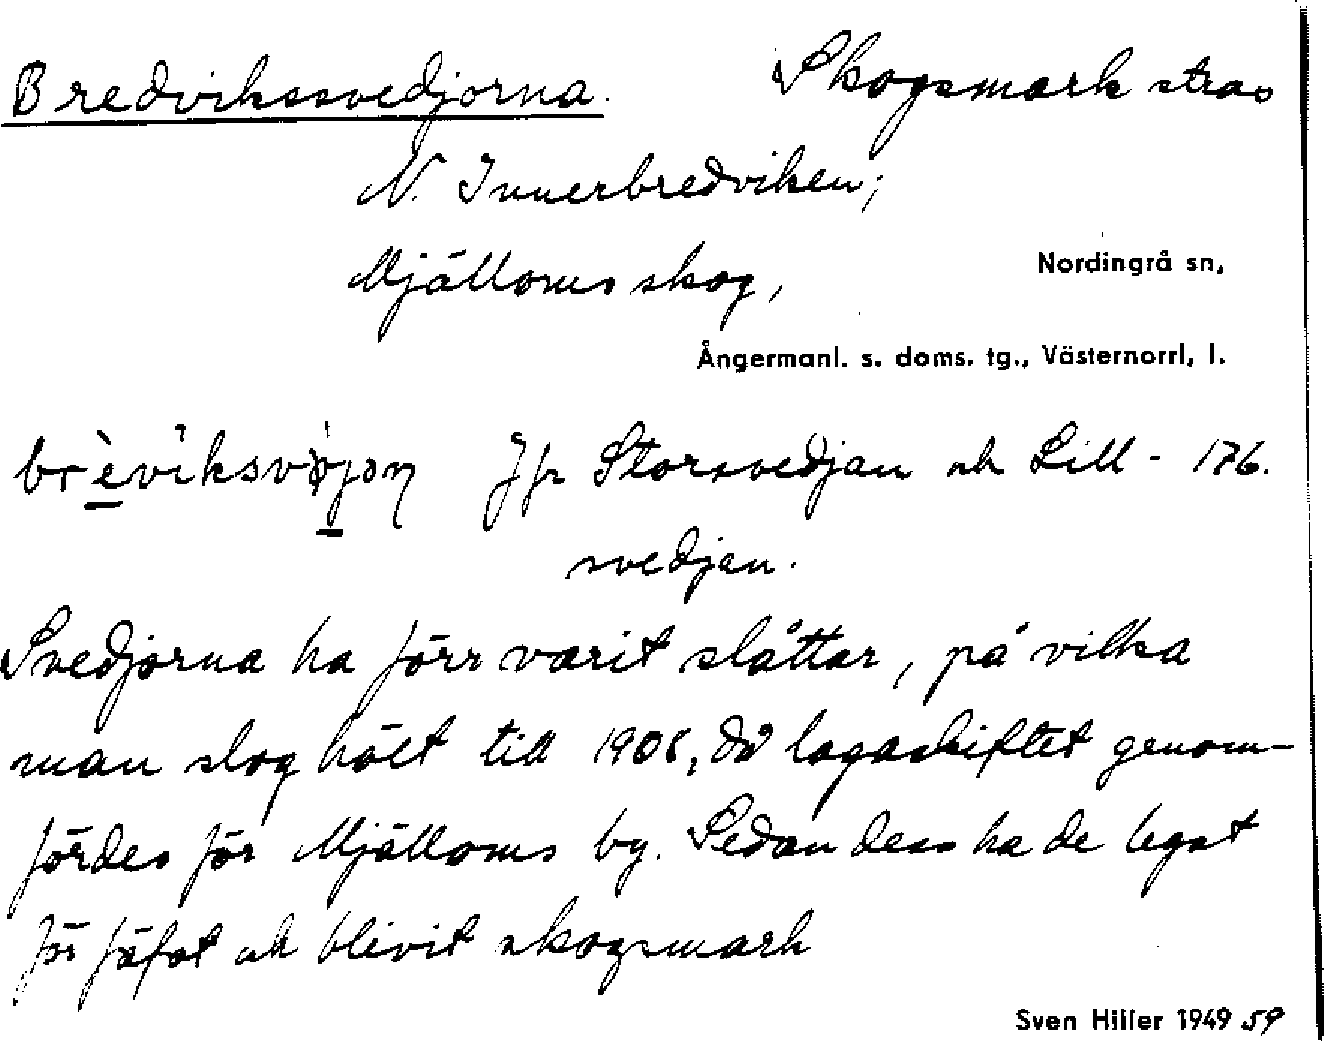 Bredvikssvedjorna. Skogsmark strax
N. Innerbredviken;
Mjälloms skog, Nordingrå sn,
Ångermanl. s. doms. tg., Västernorrl, l.
Jfr Storsvedjan och Lill- 176.
svedjan.
Svedjorna ha förr varit slåttar, på vilka
man slog hölt till 1906, då lagaskiftet genom-
fördes för Mjälloms by. Sedan dess ha de legat
för fäfot och blivit skogsmark
Sven Hiller 1949 59